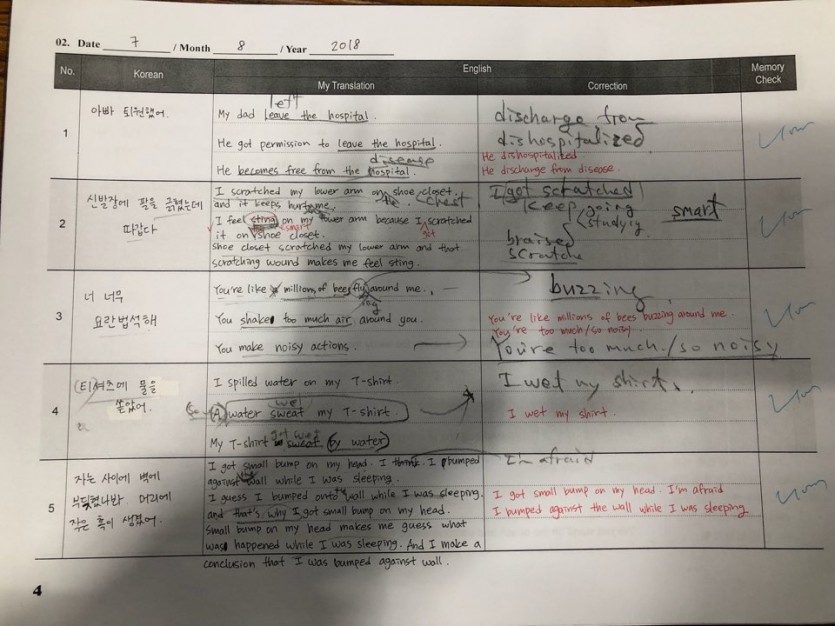 02. Date 7 / Month 8 / Year 2018
No. Korean English Memory Check
My Translation Correction
1
아빠 퇴원했어.
left
My dad leave the hospital.
He got permission to leave the hospital.
disease
He becomes free from the hospital.
discharge from
dishospitalized
He dishospitalized.
He discharge from disease.
2
신발장에 팔을 긁혔는데
따갑다
I scratched my lower arm on shoe closet.
the chest
and it keeps hurt me.
I feel sting on my lower arm because I scratched
smart
got
it on shoe closet.
shoe closet scratched my lower arm and that
scratching wound makes me feel sting.
I got scratched
keep going
studying
smart
braised
scratch
3
너 너무
요란법석해
You're like a million of bees fly around me.
ing
You shake too much air around you.
You make noisy actions.
buzzing
You're like millions of bees buzzing around me.
You're too much/so noisy.
You're too much/so noisy
4
(티)셔츠에 물을
쏟았어.
I spilled water on my T-shirt.
wet
So (A) water sweat my T-shirt
got wet
My T-shirt is sweat (by water)
I wet my shirts.
I wet my shirt.
5
자는 사이에 벽에
부딪혔나봐. 머리에
작은 혹이 생겼어.
I got small bump on my head. I think I bumped
against wall while I was sleeping.
I guess I bumped onto wall while I was sleeping.
and that's why I got small bump on my head.
small bump on my head makes me guess what
was happened while I was sleeping. And I make a
conclusion that I was bumped against wall.
I'm afraid
I got small bump on my head. I'm afraid
I bumped against the wall while I was sleeping
4